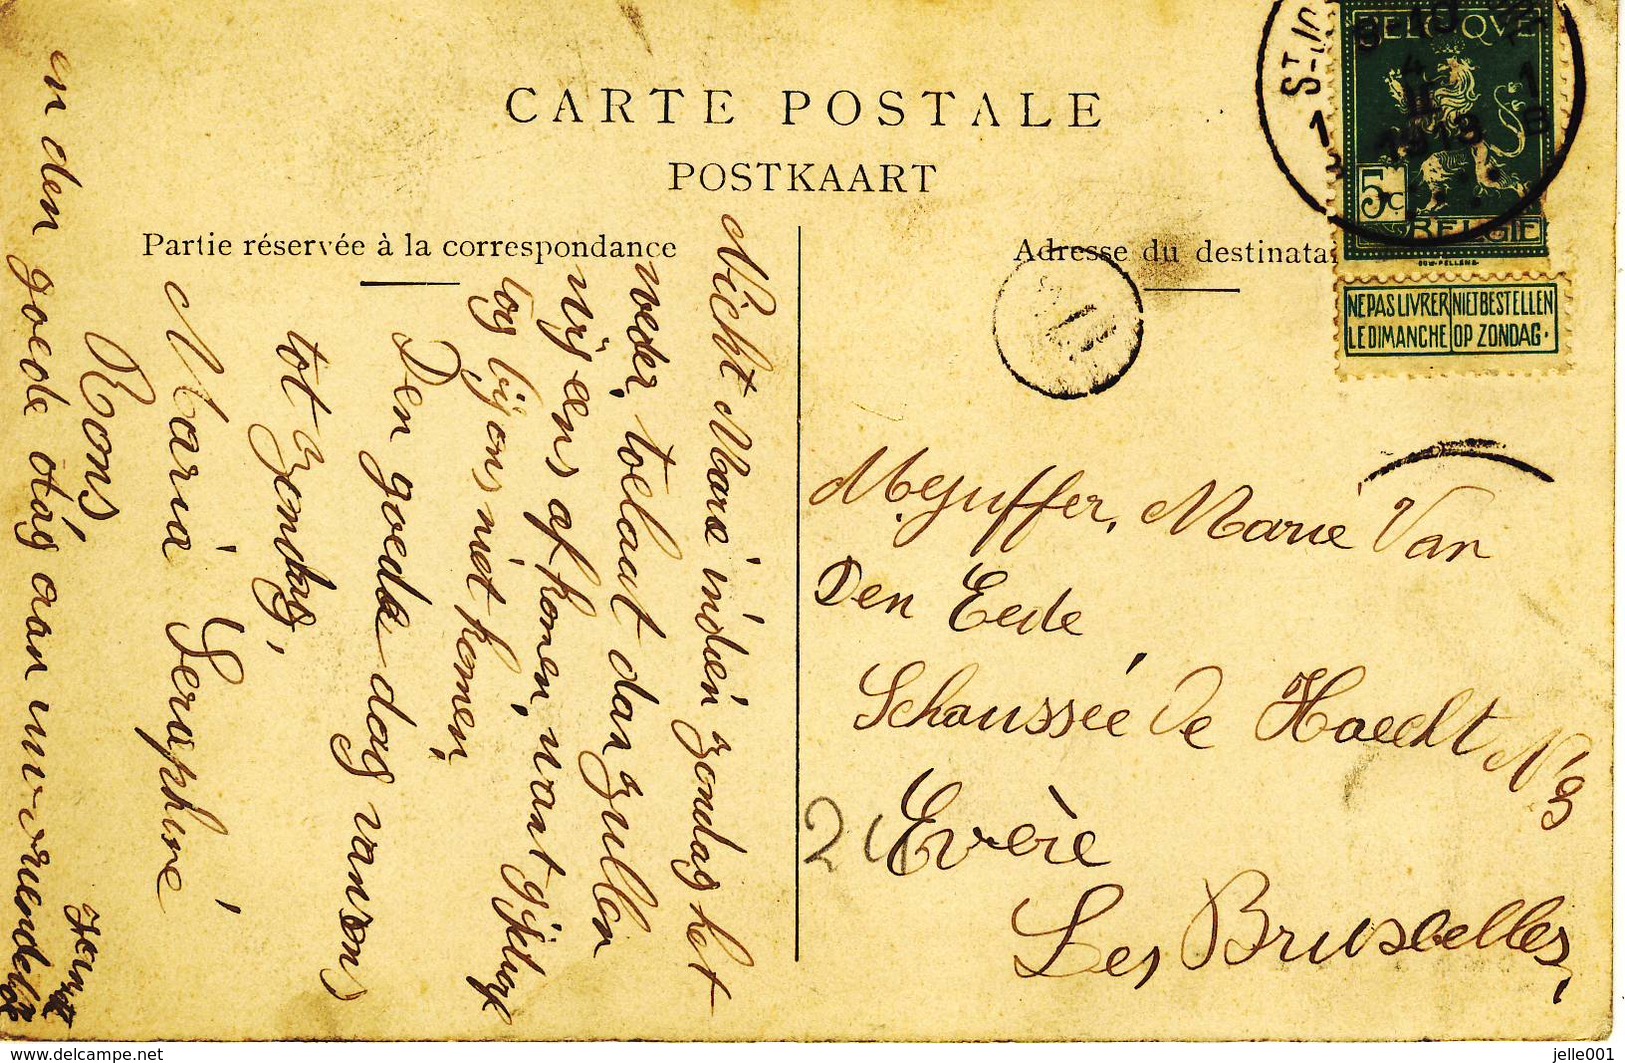 CARTE POSTALE
POSTKAART
Partie réservée à la correspondance
Adresse du destinata
BELGIQUE
5c
BELGIE
NE PAS LIVRER LE DIMANCHE
NIET BESTELLEN OP ZONDAG.
ST-JO
1913
1 B
Nicht Marie indien zondag het
weder toelaat dan zullen
wij eens afkomen, want gijlung
tog bij ons niet komen
Den goede dag van ons
tot zondag,
Maria Seraphine
Rons
en den goede dag aan uw vriendelie
Mejuffer, Marie Van
Den Eede
Schaussée De Haecht N 93
Evère
Les Bruscelles
https://www.delcampe.net
jelle001